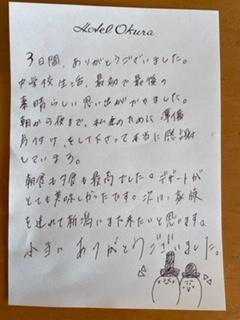 Hotel Okura
3日間、ありがとうございました。
中学校生活、最初で最後の
素晴らしい思い出ができました。
朝から夜まで、私達のために準備
片付け、をして下さって本当に感謝
しています。
朝食も夕食も最高でした。デザートが
とても美味しかったです。次は家族
を連れて新潟にまた来たいと思います。
本当にありがとうございました。